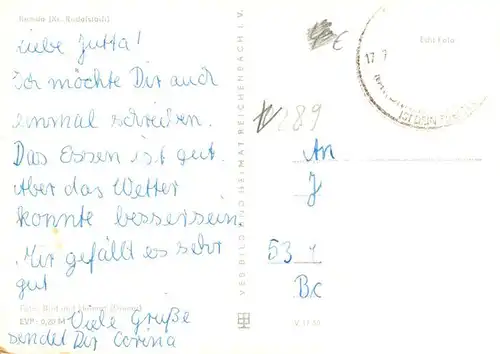 Remda (Kr. Rudolstadt)
Liebe Jutta!
Ich möchte Dir auch
einmal schreiben.
Das Essen ist gut.
Aber das Wetter
konnte besser sein.
Mir gefällt es sehr
gut
EVP: 0,20 M
Viele Grüße
sendet Dir Corina
VEB BILD UND HEIMAT REICHENBACH I. V.
€
Echt Foto
17.7
N 289
An
J
53 1
Bc
V 11 50